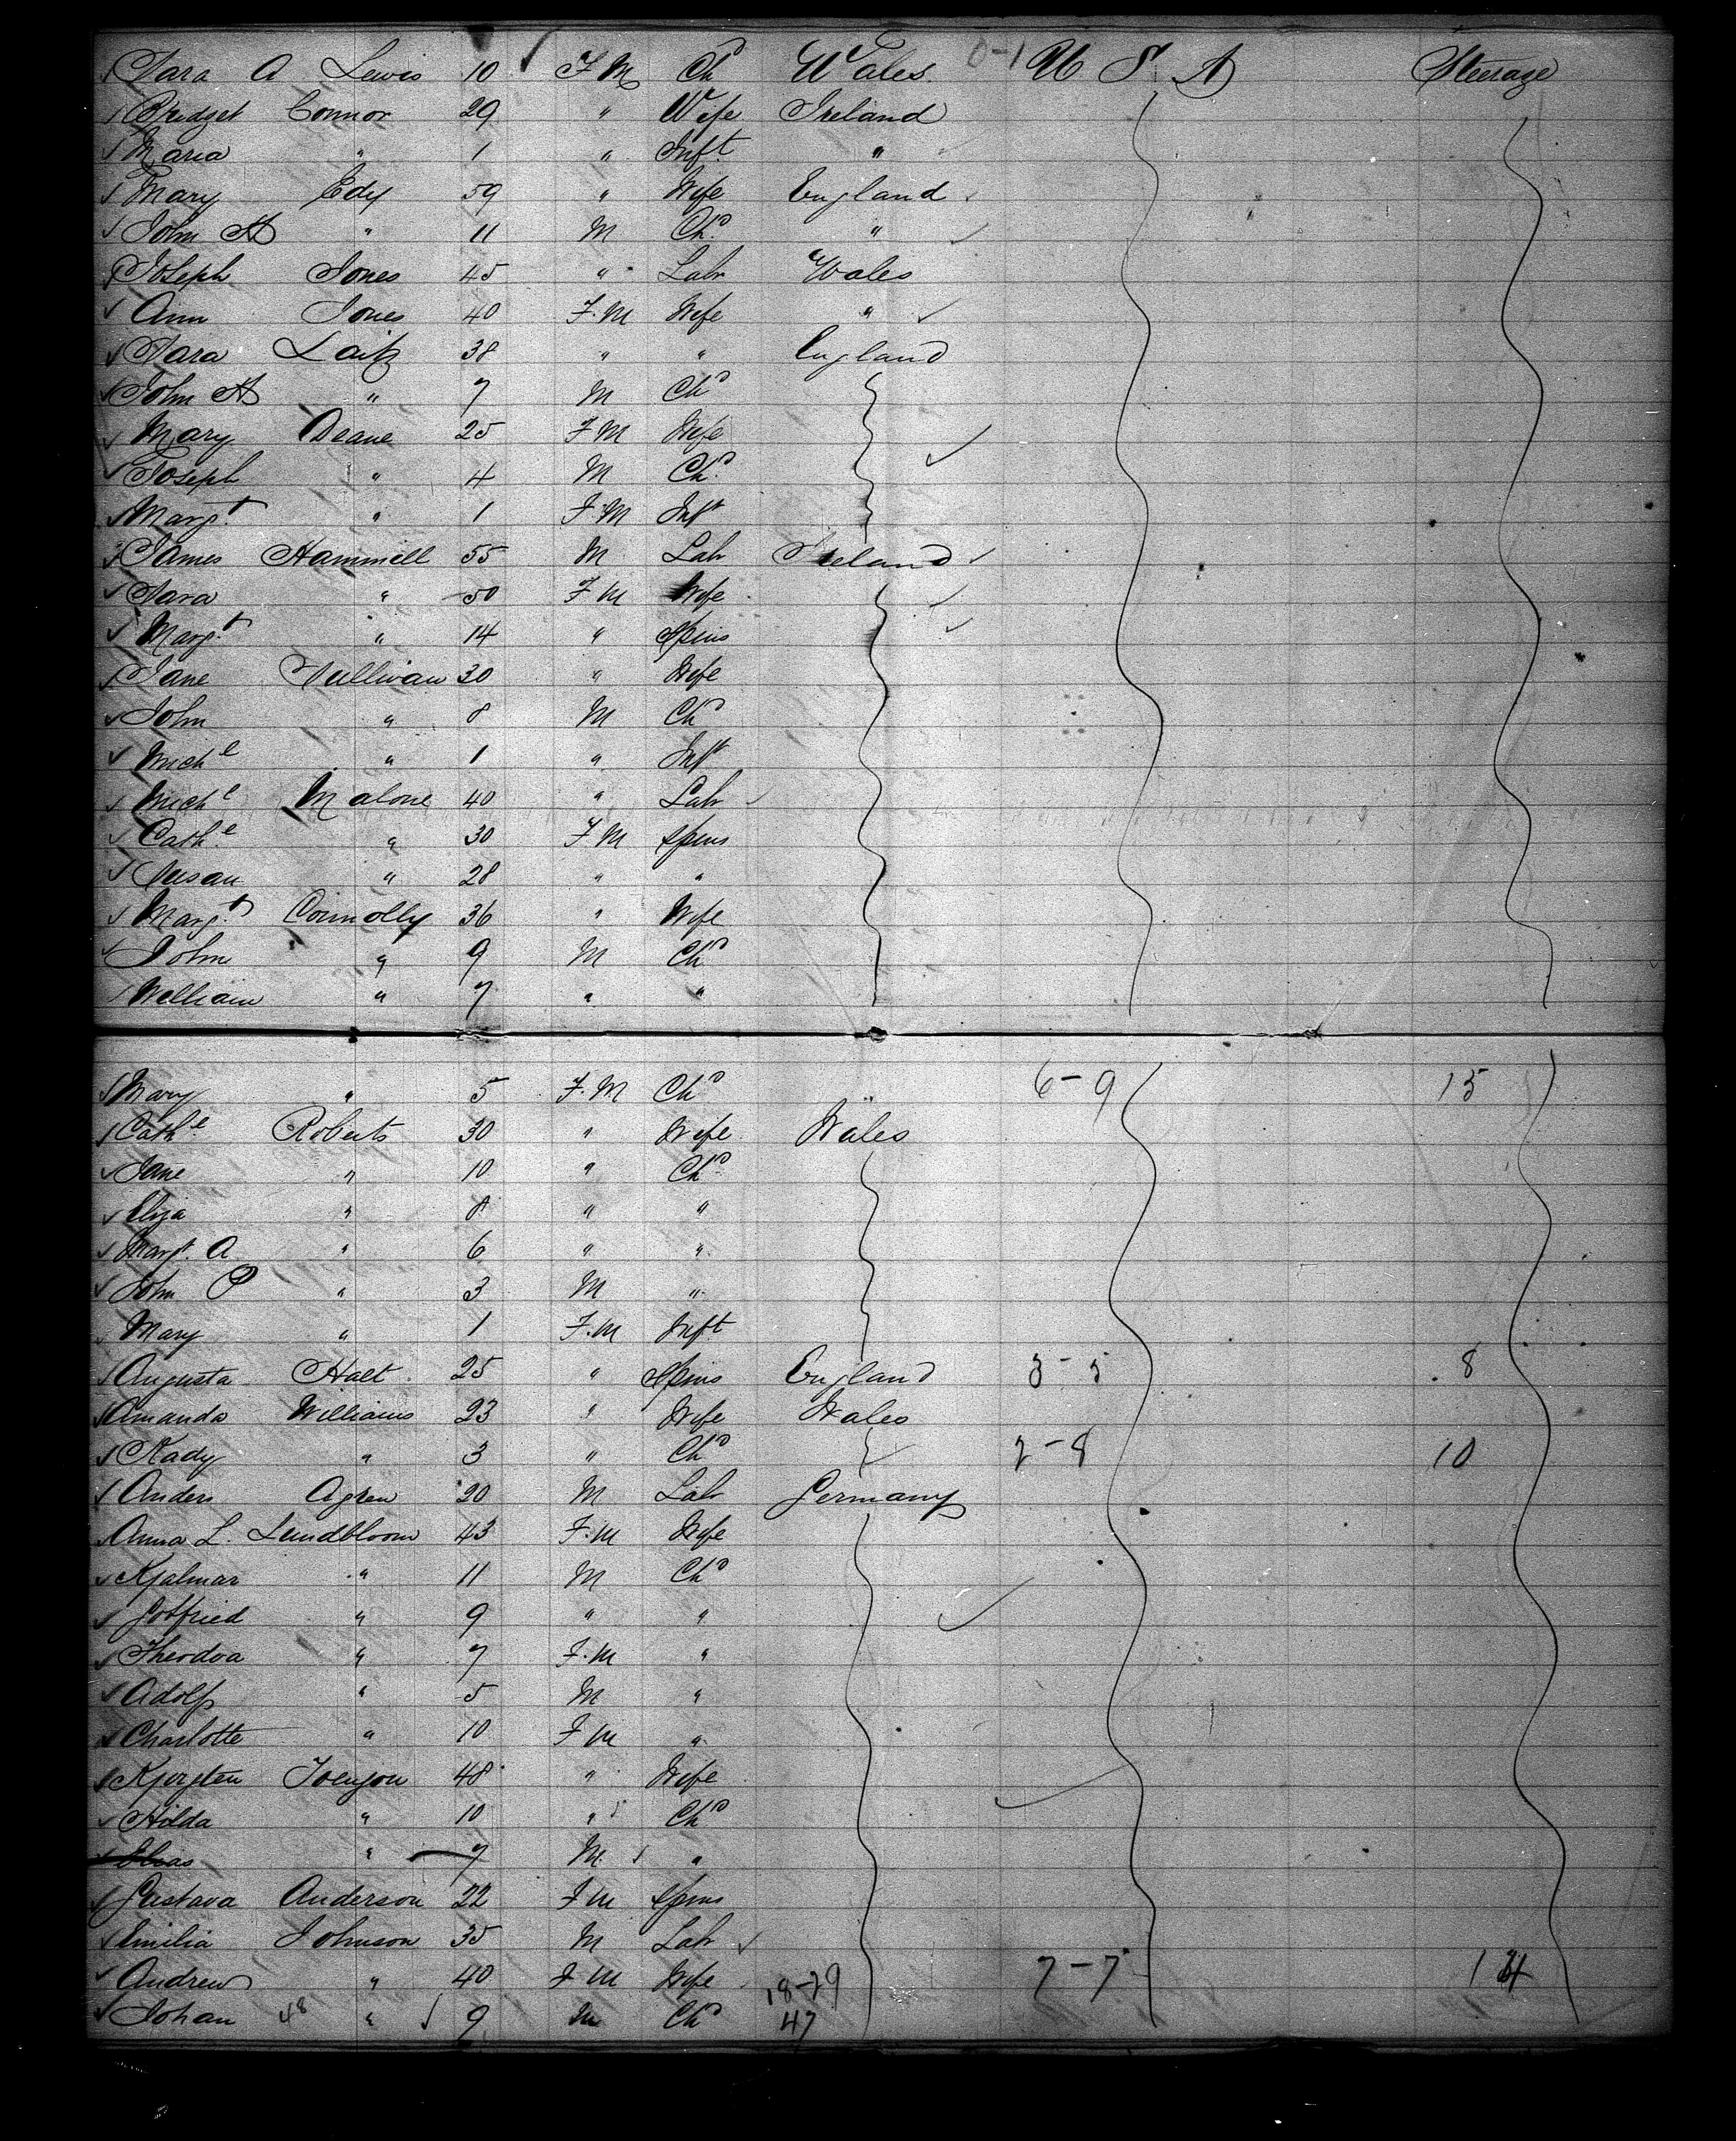 Sara A Lewis 10 F M Ch Wales 0-1 U S A Steerage
Bridget Connor 29 " Wife Ireland
Maria " 1 " Inft "
Mary Edy 59 " Wife England
John H " 11 M Chd "
Joseph Jones 45 " Labr Wales
Ann Jones 40 F.M Wife "
Sara 38 " " England
John H " 7 M Chd
Mary Deane 25 F M Wife
Joseph " 4 M Chd
Margt " 1 F.M Inft
James Hammill 55 M Labr Ireland
Sara " 50 F M Wife
Margt " 14 " Spins
Jane Sullivan 30 " Wife
John " 8 M Chd
Michl " 1 " Inft
Michl Malone 40 " Labr
Cathe " 30 F M Spins
Susan " 28 " "
Margt Connolly 36 " Wife
John " 9 M Chd
William " 7 " "
Mary " 5 F.M Chd " 6-9 15
Cathe Roberts 30 " Wife Wales
Jane " 10 " Chd
Eliza " 8 " "
Margt. A " 6 " "
John P " 3 M "
Mary " 1 F.M Inft
Augusta 25 " Spins England 3-5 8
Amanda Williams 23 " Wife Wales
Kady " 3 " Chd 2-8 10
Anders Agren 20 M Labr Germany
Anna L. Lundbloom 43 F.M Wife
Kjalmar " 11 M Chd
Gotfried " 9 " "
Theodora " 7 F.M "
Adolf " 5 M "
Charlotte " 10 F M "
Kjersten 48 " Wife
Hilda " 10 " Chd
Elias " 7 M "
Gustava Anderson 22 F M Spins
Emilia Johnson 35 M Labr
Andrew " 40 F M Wife 18-29 7-7 14
Johan 48 " 9 M Chd 47